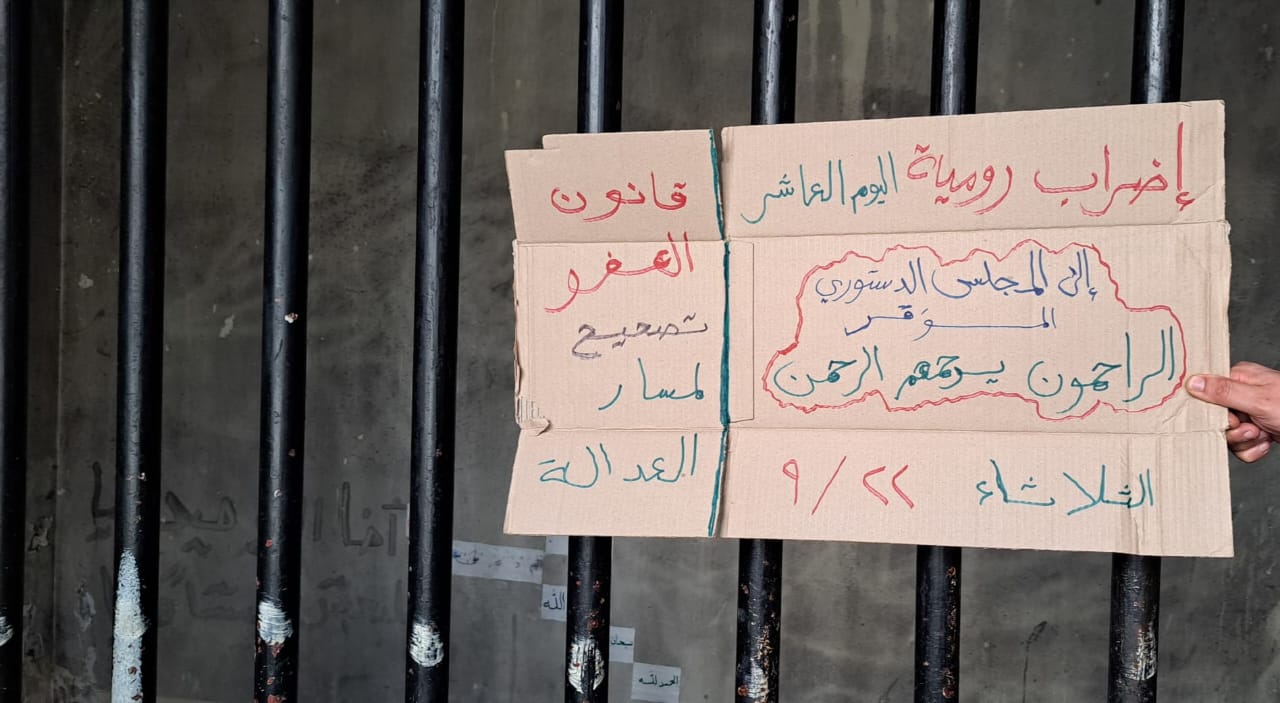 إضراب رومية اليوم العاشر
إلى المجلس الدستوري
الموَقر
الراحمون يرحمهم الرحمن
الثلاثاء ٢٢ / ٩
قانون
العفو
تصحيح
لمسار
العدالة
أنا
الله
سبحان
الحمد لله